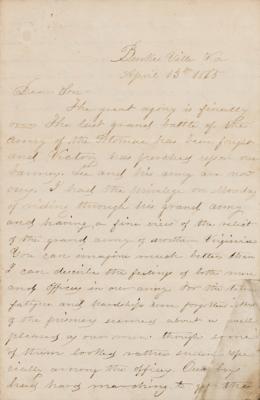 Burke's Ville Va
April 13th 1865
Dear Son
The great agony is finally
over. The last grand battle of the
Army of the Potomac has been fought
and Victory has perched upon our
banners. Lee and his army are now
ours. I had the privilege on Monday
of riding through his grand army
and having a fine view of the relict
of the grand army of northern Virginia
You can imagine much better than
I can describe the feelings of both men
and officers in our army for the time
fatigue and hardships were forgotten
of the prisoners seemed about as well
pleased as our men. though some
of them looked rather sullen espe
cially among the officers. Our boys
had hard marching to get